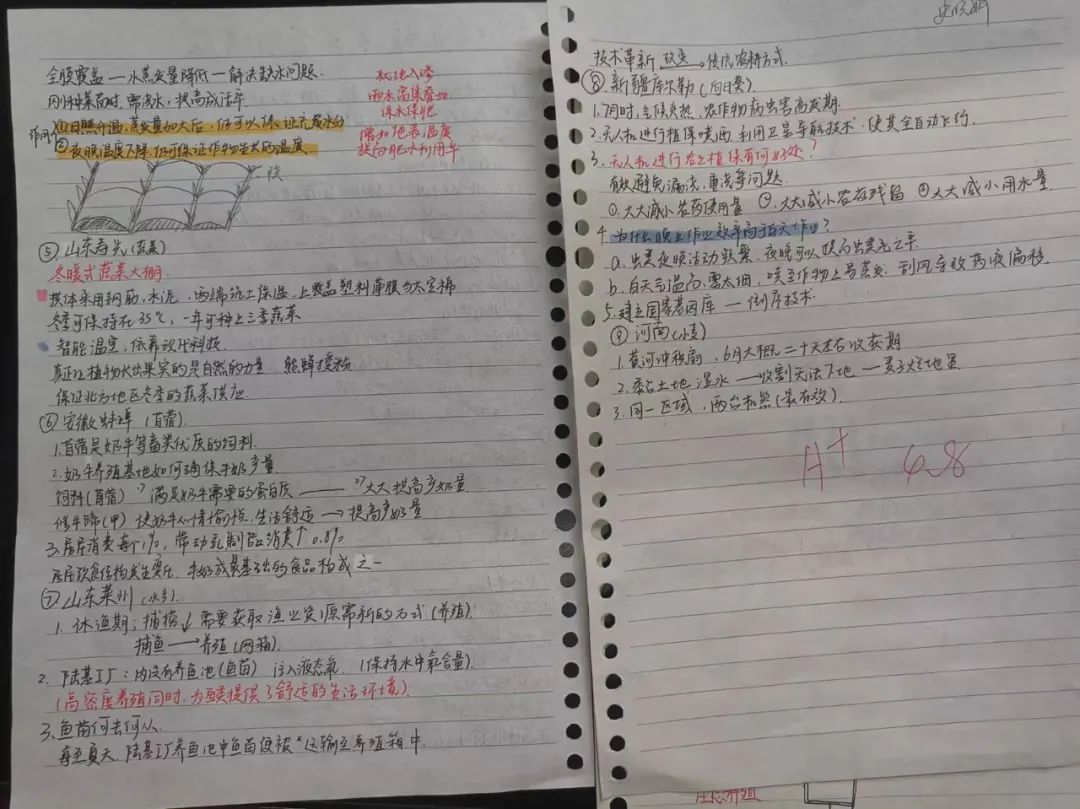 全膜覆盖—水蒸发量降低—解决缺水问题.
刚种菜苗时,需浇水,提高成活率.
①日照升温,蒸发量加大后,仍可以保证充足水分
②夜晚温度下降,仍可保证作物生长的温度.
就地入渗
雨水富集叠加
保水保肥
增加地表温度
提高肥水利用率
⑤山东寿光(蔬菜)
冬暖式蔬菜大棚.
拱体采用钢筋,水泥,两端筑土保温,上覆盖塑料薄膜与太空棉
冬季可保持在35℃,一年可种上三季蔬菜
智能温室,依靠现代科技.
真正让植物长出果实的是自然的力量 熊蜂授粉
保证北方地区冬季的蔬菜供应
⑥安徽蚌埠(苜蓿)
1.苜蓿是奶牛等畜类优质的饲料.
2.奶牛养殖基地如何确保牛奶产量.
饲料(苜蓿) 满足奶牛需要的蛋白质——大大提高产奶量
修牛蹄(甲)使奶牛心情愉悦.生活舒适→提高产奶量
3.居民消费每个1%,带动乳制品消费↑0.8%
居民饮食结构发生变化,牛奶成最基础的食品构成之一
⑦山东莱州
1.休渔期:捕捞↓需要获取渔业资源需新的方式(养殖).
捕鱼→养殖(网箱).
2.陆基工厂:内设有养鱼池(鱼苗) 注入液态氧.(保持水中氧含量).
(高密度养殖同时,为鱼类提供了舒适的生活环境).
3.鱼苗何去何从.
每至夏天,陆基工厂养鱼池中鱼苗便被运输至养殖箱中.
技术革新 改变→传统农耕方式.
⑧新疆库尔勒(向日葵)
1.7月时,气候炎热,农作物病虫害高发期.
2.无人机进行植保喷洒,利用卫星导航技术,使其全自动飞行.
3.无人机进行农业植保有何好处?
有效避免漏洒,重洒等问题.
①.大大减小农药使用量 ②.大大减小农药残留 ④大大减小用水量
4.为什么晚上作业效率高于白天作业?
a.虫类夜晚活动频繁,夜晚可以提高虫类死亡率
b.白天气温高,雾太细,喷至作物上易蒸发,刮风导致药液偏移.
5.建立国家基因库—测序技术.
⑨河南(小麦)
1.黄河冲积扇,6月大概二十天左右收获期
2.黏土土地湿水—收割无法下地—麦子烂地里
3.同一区域,两台机器(最有效).
A+ 6.8